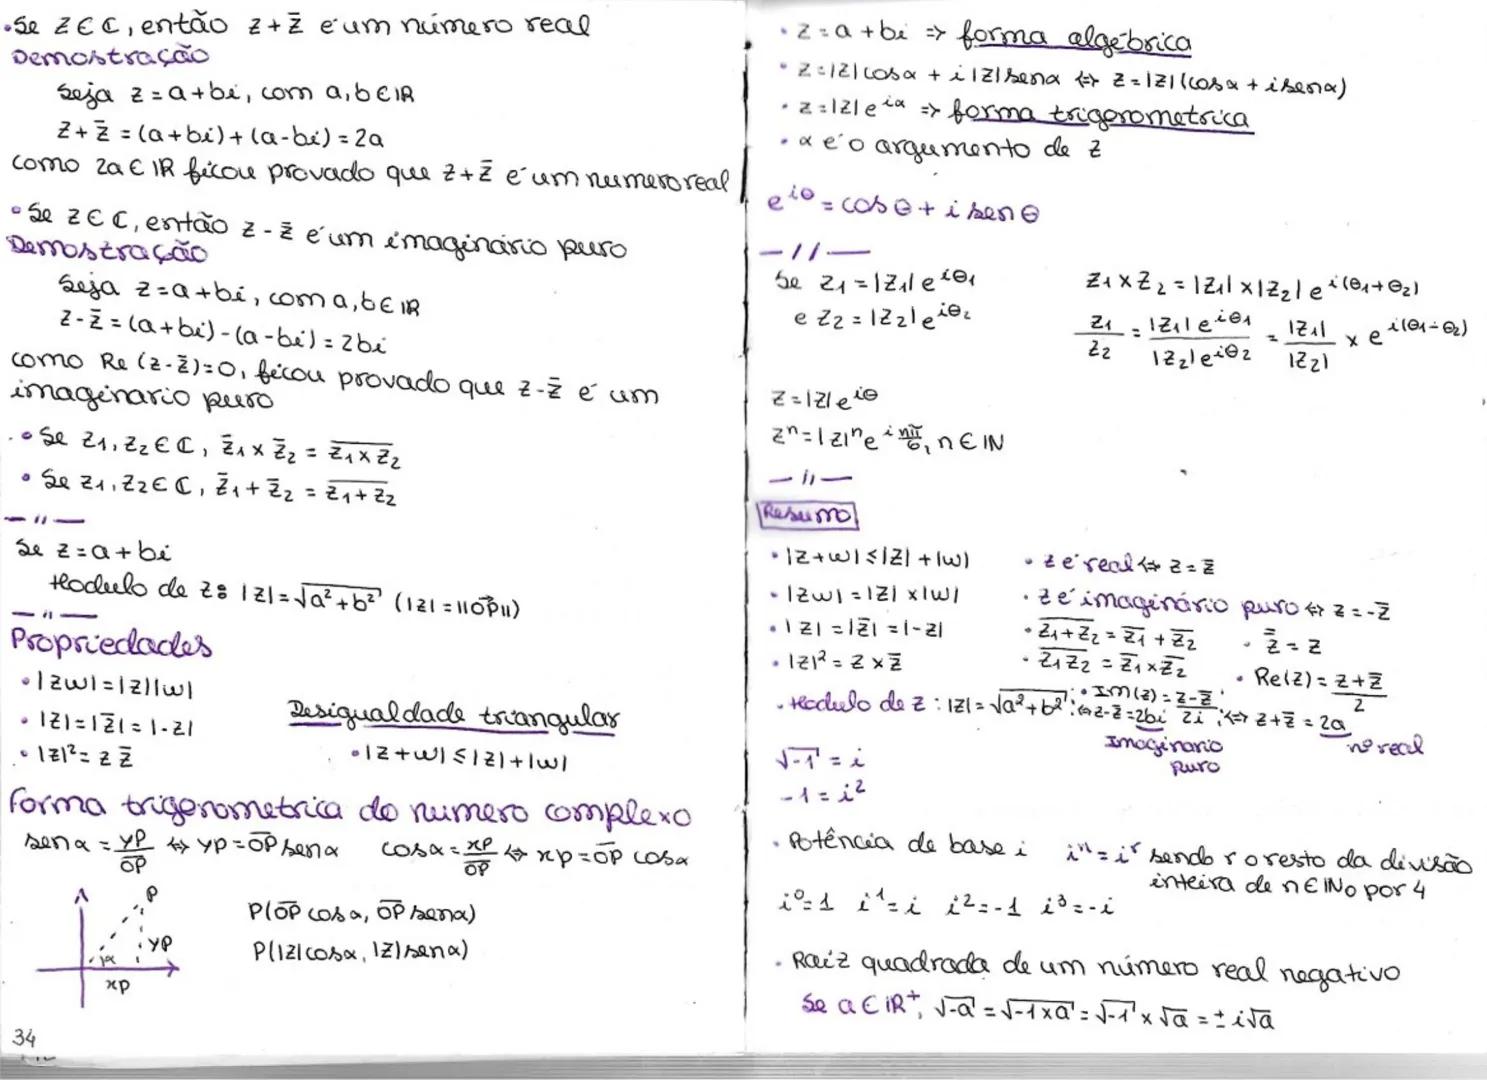 •Se z∈ℂ, então z+z̄ é um número real
Demostração
Seja z=a+bi, com a,b∈IR
z+z̄=(a+bi)+(a-bi)=2a
como 2a∈IR ficou provado que z+z̄ é um numero real
•Se z∈ℂ, então z-z̄ é um imaginário puro
Demostração
Seja z=a+bi, com a,b∈IR
z-z̄=(a+bi)-(a-bi)=2bi
como Re(z-z̄)=0, ficou provado que z-z̄ é um
imaginario puro
•Se z1,z2∈ℂ, z̄1×z̄2 = \overline{z1×z2}
•Se z1,z2∈ℂ, z̄1+z̄2 = \overline{z1+z2}
—//—
Se z=a+bi
Modulo de z: |z|=√(a²+b²) (|z|=||\vec{OP}||)
—//—
Propriedades
•|zw|=|z||w|
•|z|=|z̄|=|-z|
•|z|²=z z̄
Desigualdade triangular
•|z+w|≤|z|+|w|
Forma trigonometrica do numero complexo
senα=yP/\overline{OP} ⇔ yP=\overline{OP} senα cosα=xP/\overline{OP} ⇔ xP=\overline{OP} cosα
P
α
yP
xP
P(\overline{OP} cosα, \overline{OP} senα)
P(|z|cosα, |z|senα)
34
•z=a+bi ⇒ forma algébrica
•z=|z|cosα+i|z|senα ⇔ z=|z|(cosα+isenα)
•z=|z|e^{iα} ⇒ forma trigonometrica
•α é o argumento de z
e^{iθ}=cosθ+i senθ
—//—
Se z1=|z1|e^{iθ1}
e z2=|z2|e^{iθ2}
z1×z2=|z1|×|z2|e^{i(θ1+θ2)}
z1/z2=|z1|e^{iθ1}/|z2|e^{iθ2}=|z1|/|z2|×e^{i(θ1-θ2)}
z=|z|e^{iθ}
z^n=|z|^n e^{i nπ/6}, n∈IN
—//—
Resumo
•|z+w|≤|z|+|w|
•|zw|=|z|×|w|
•|z|=|z̄|=|-z|
•|z|²=z×z̄
•Modulo de z: |z|=√(a²+b²)
•z é real ⇔ z=z̄
•z é imaginário puro ⇔ z=-z̄
•\overline{z1+z2}=z̄1+z̄2
•\overline{z1z2}=z̄1×z̄2
•\overline{z̄}=z
•Re(z)=(z+z̄)/2
⇔ z+z̄=2a
nº real
•Im(z)=(z-z̄)/2i
⇔ z-z̄=2bi
Imaginario
puro
√-1=i
-1=i²
•Potência de base i i^n=i^r sendo r o resto da divisão
inteira de n∈INo por 4
i⁰=1 i¹=i i²=-1 i³=-i
•Raiz quadrada de um número real negativo
Se a∈IR⁺, √-a=√-1×a=√-1×√a=±i√a